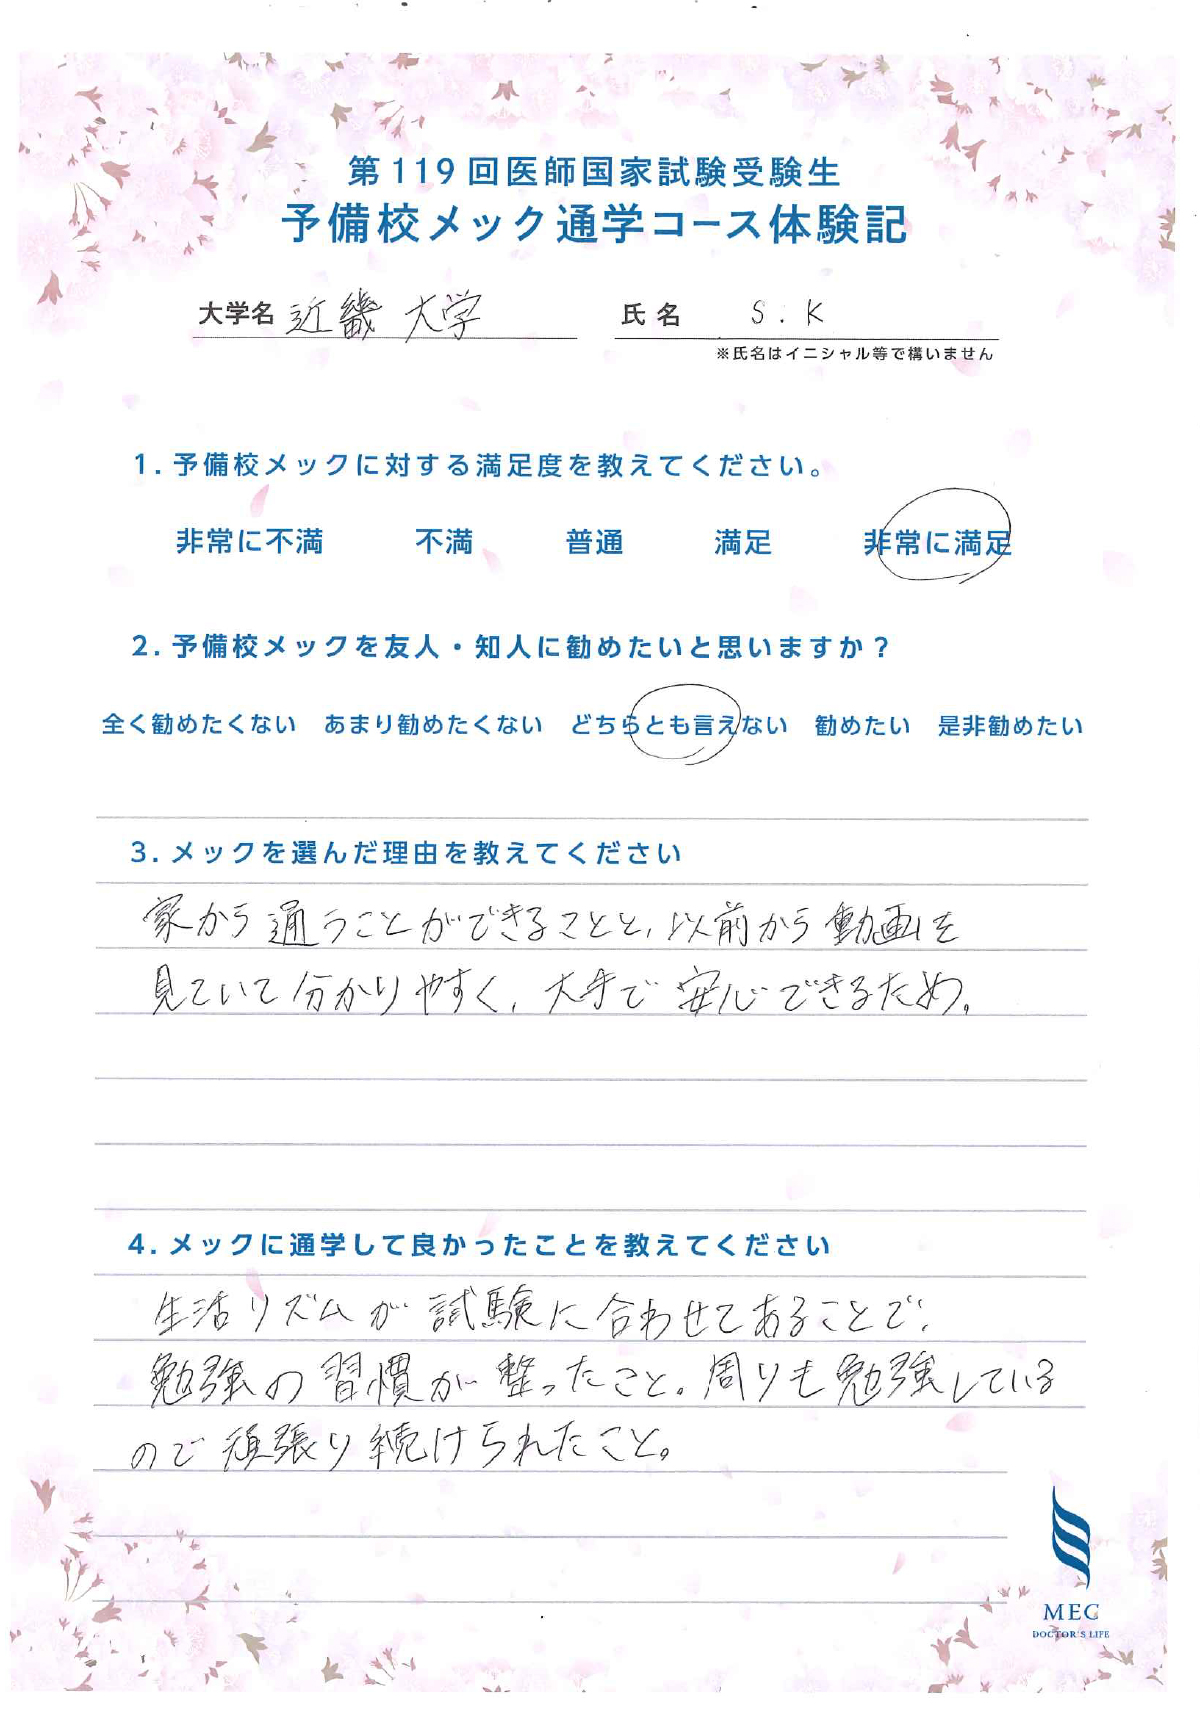 第119回医師国家試験受験生
予備校メック通学コース体験記
大学名 近畿大学 氏名 S.K
※氏名はイニシャル等で構いません
1.予備校メックに対する満足度を教えてください。
非常に不満 不満 普通 満足 非常に満足
2.予備校メックを友人・知人に勧めたいと思いますか?
全く勧めたくない あまり勧めたくない どちらとも言えない 勧めたい 是非勧めたい
3.メックを選んだ理由を教えてください
家から通うことができることと、以前から動画を
見ていて分かりやすく、大手で安心できるため。
4.メックに通学して良かったことを教えてください
生活リズムが試験に合わせてあることで、
勉強の習慣が整ったこと。周りも勉強している
ので頑張り続けられたこと。
MEC
DOCTOR'S LIFE